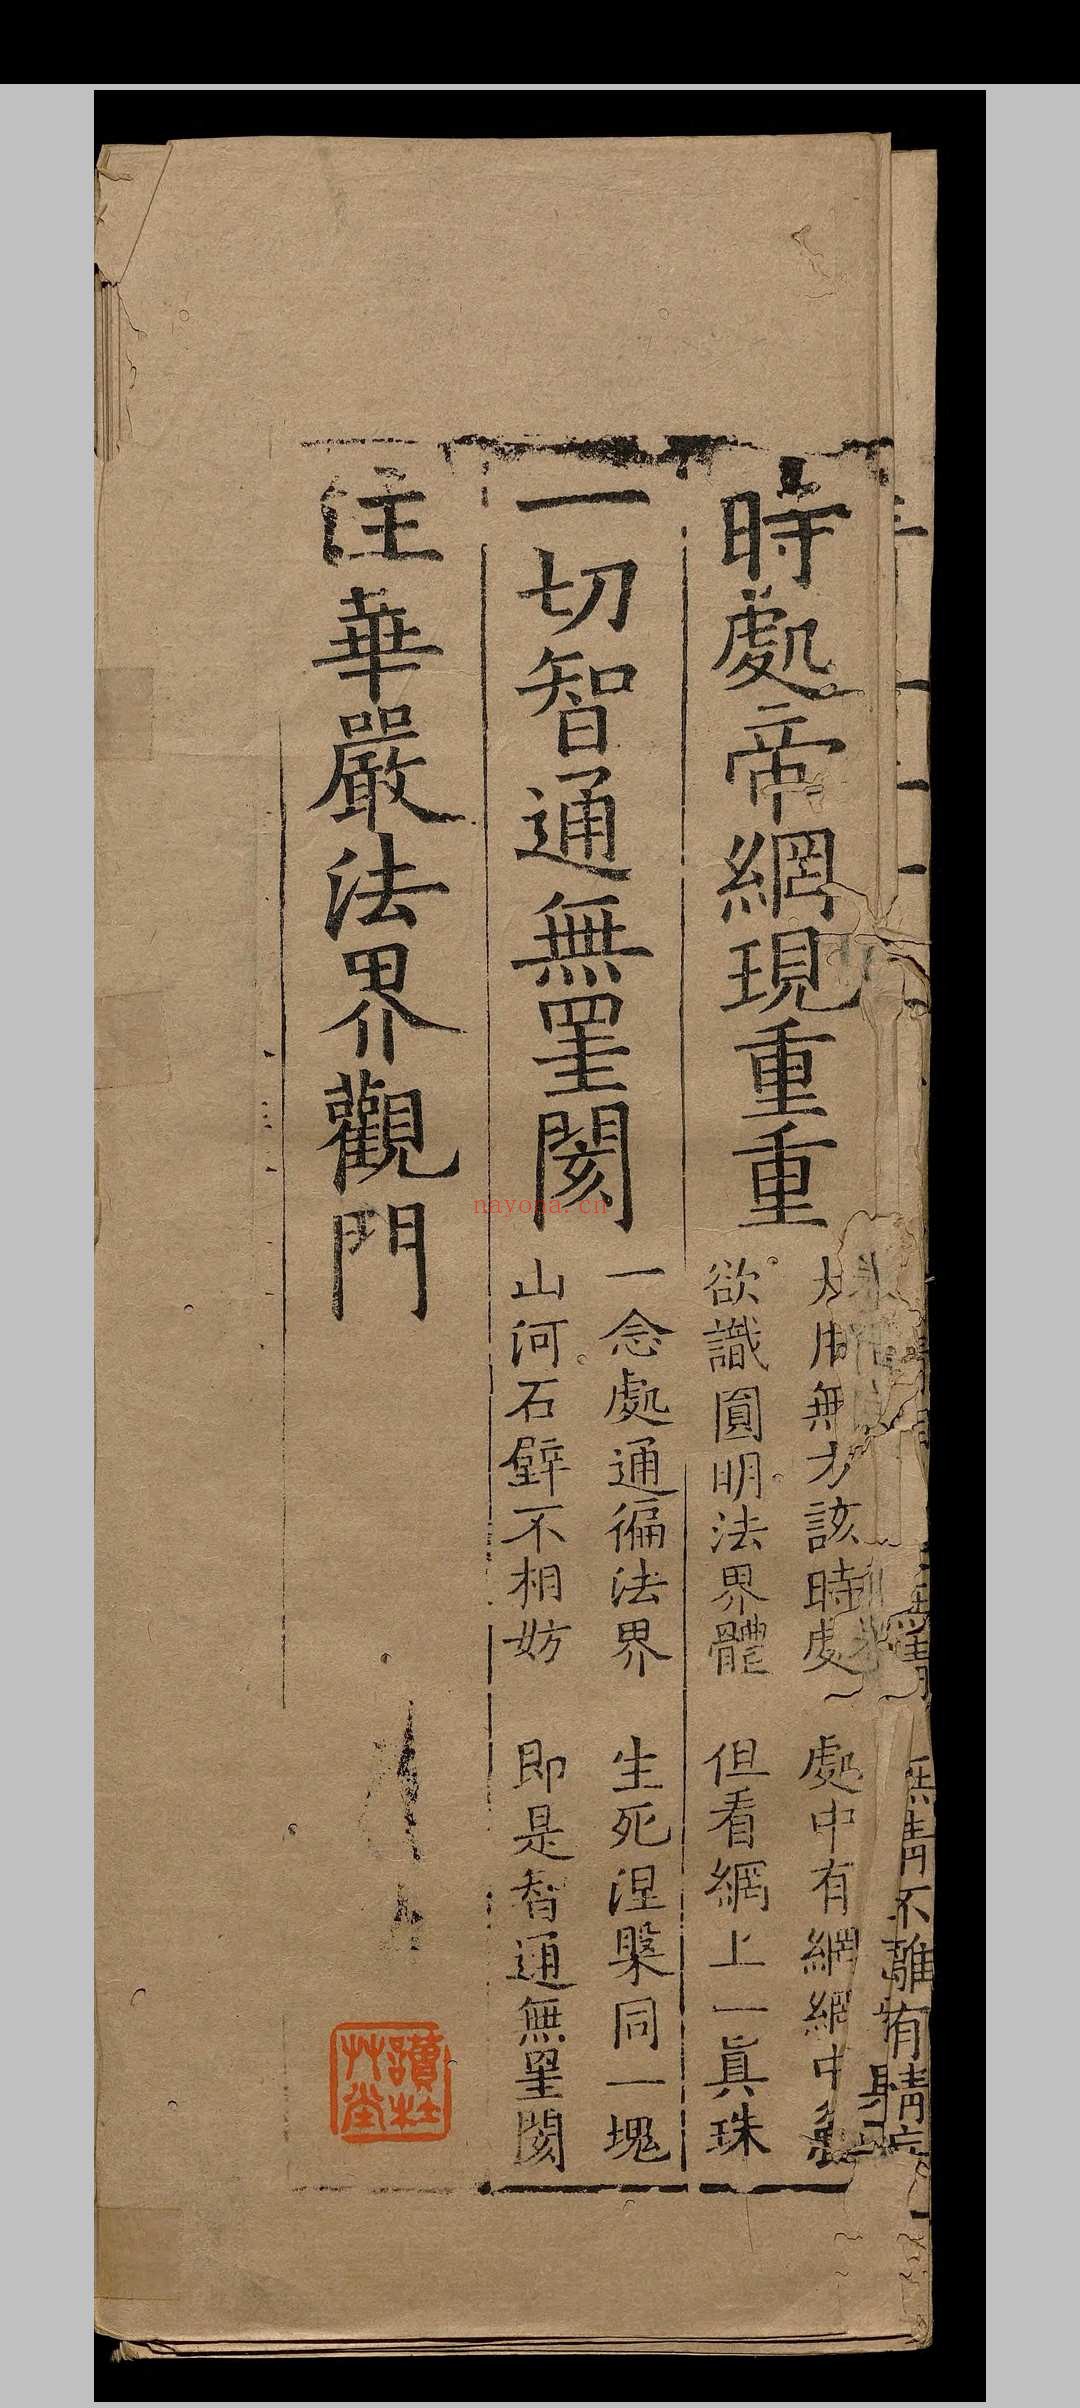 時處帝網現重重
無方該時處
處中有網網中
欲識圓明法界體
但看網上一真珠
一切智通無罣閡
一念處通徧法界
生死涅槃同一塊
山河石壁不相妨
即是智通無罣閡
注華嚴法界觀門
讀杜艸堂
nayona.cn